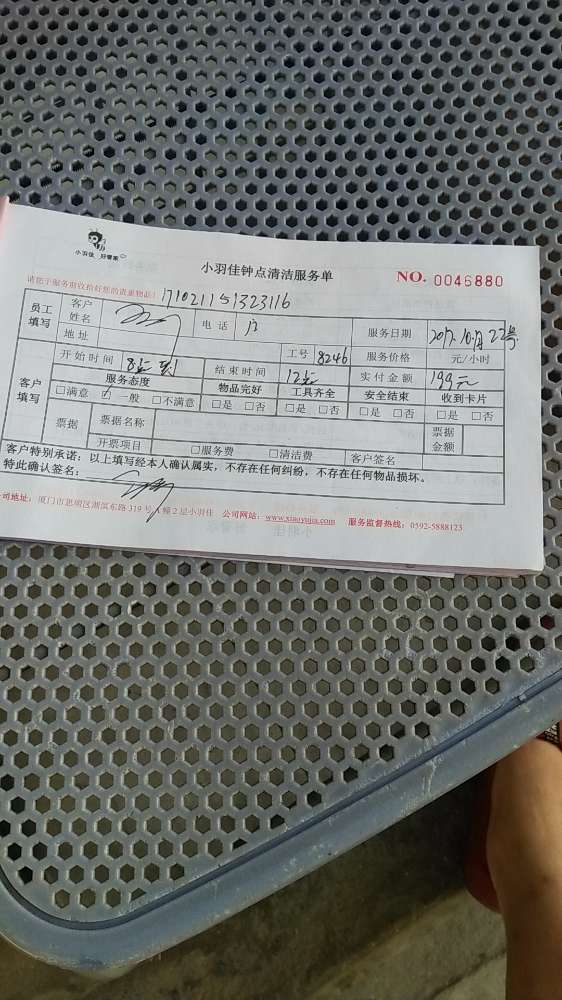 小羽佳 好管家
小羽佳钟点清洁服务单 NO. 0046880
请您于服务前收拾好您的贵重物品! 171021151323116
员工填写 客户姓名 电话 服务日期 2017.10月22号
地址 工号 8246 服务价格 元/小时
客户填写 开始时间 8点 结束时间 12点 实付金额 199元
服务态度 物品完好 工具齐全 安全结束 收到卡片
□满意 ☑一般 □不满意 □是 □否 □是 □否 □是 □否 □是 □否
票据 票据名称 票据金额
开票项目 □服务费 □清洁费 客户签名
客户特别承诺：以上填写经本人确认属实，不存在任何纠纷，不存在任何物品损坏。
特此确认签名：
司地址：厦门市思明区湖滨东路 319 号 A 幢 2 层小羽佳 公司网站：www.xiaoyujia.com 服务监督热线：0592-5888123